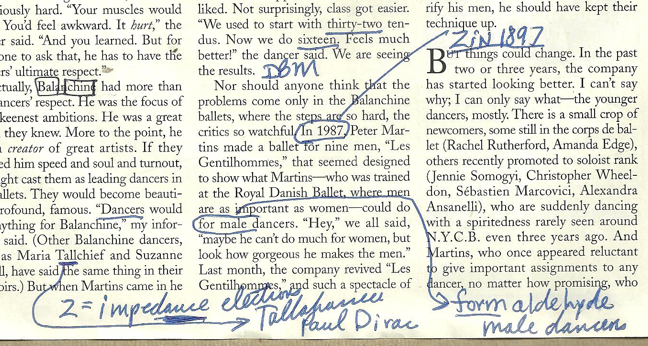 iously hard. "Your muscles would
You'd feel awkward. It hurt," the
er said. "And you learned. But for
one to ask that, he has to have the
ers' ultimate respect."
ctually, Balanchine had more than
ancers' respect. He was the focus of
keenest ambitions. He was a great
they knew. More to the point, he
creator of great artists. If they
ed him speed and soul and turnout,
ght cast them as leading dancers in
allets. They would become beauti-
rofound, famous. "Dancers would
ything for Balanchine," my infor-
said. (Other Balanchine dancers,
as Maria Tallchief and Suzanne
ll, have said the same thing in their
oirs.) But when Martins came in he
liked. Not surprisingly, class got easier.
"We used to start with thirty-two ten-
dus. Now we do sixteen. Feels much
better!" the dancer said. We are seeing
the results. DBM
Nor should anyone think that the
problems come only in the Balanchine
ballets, where the steps are so hard, the
critics so watchful. In 1987, Peter Mar-
tins made a ballet for nine men, "Les
Gentilhommes," that seemed designed
to show what Martins—who was trained
at the Royal Danish Ballet, where men
are as important as women—could do
for male dancers. "Hey," we all said,
"maybe he can't do much for women, but
look how gorgeous he makes the men."
Last month, the company revived "Les
Gentilhommes," and such a spectacle of
rify his men, he should have kept their
technique up.
ZIN 1897
BUT things could change. In the past
two or three years, the company
has started looking better. I can't say
why; I can only say what—the younger
dancers, mostly. There is a small crop of
newcomers, some still in the corps de bal-
let (Rachel Rutherford, Amanda Edge),
others recently promoted to soloist rank
(Jennie Somogyi, Christopher Wheel-
don, Sébastien Marcovici, Alexandra
Ansanelli), who are suddenly dancing
with a spiritedness rarely seen around
N.Y.C.B. even three years ago. And
Martins, who once appeared reluctant
to give important assignments to any
dancer, no matter how promising, who
Z = impedance electrons
Tallahassee
Paul Dirac
formaldehyde
male dancers